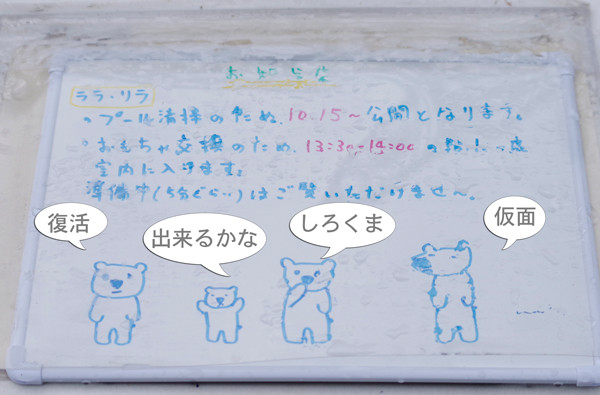 お知らせ
ララ・リラ
・プール清掃のため、10:15〜公開となります。
・おもちゃ交換のため、13:30-14:00の間に一度
室内に入ります。
準備中(5分ぐらい)はご覧いただけません。
復活
出来るかな
しろくま
仮面